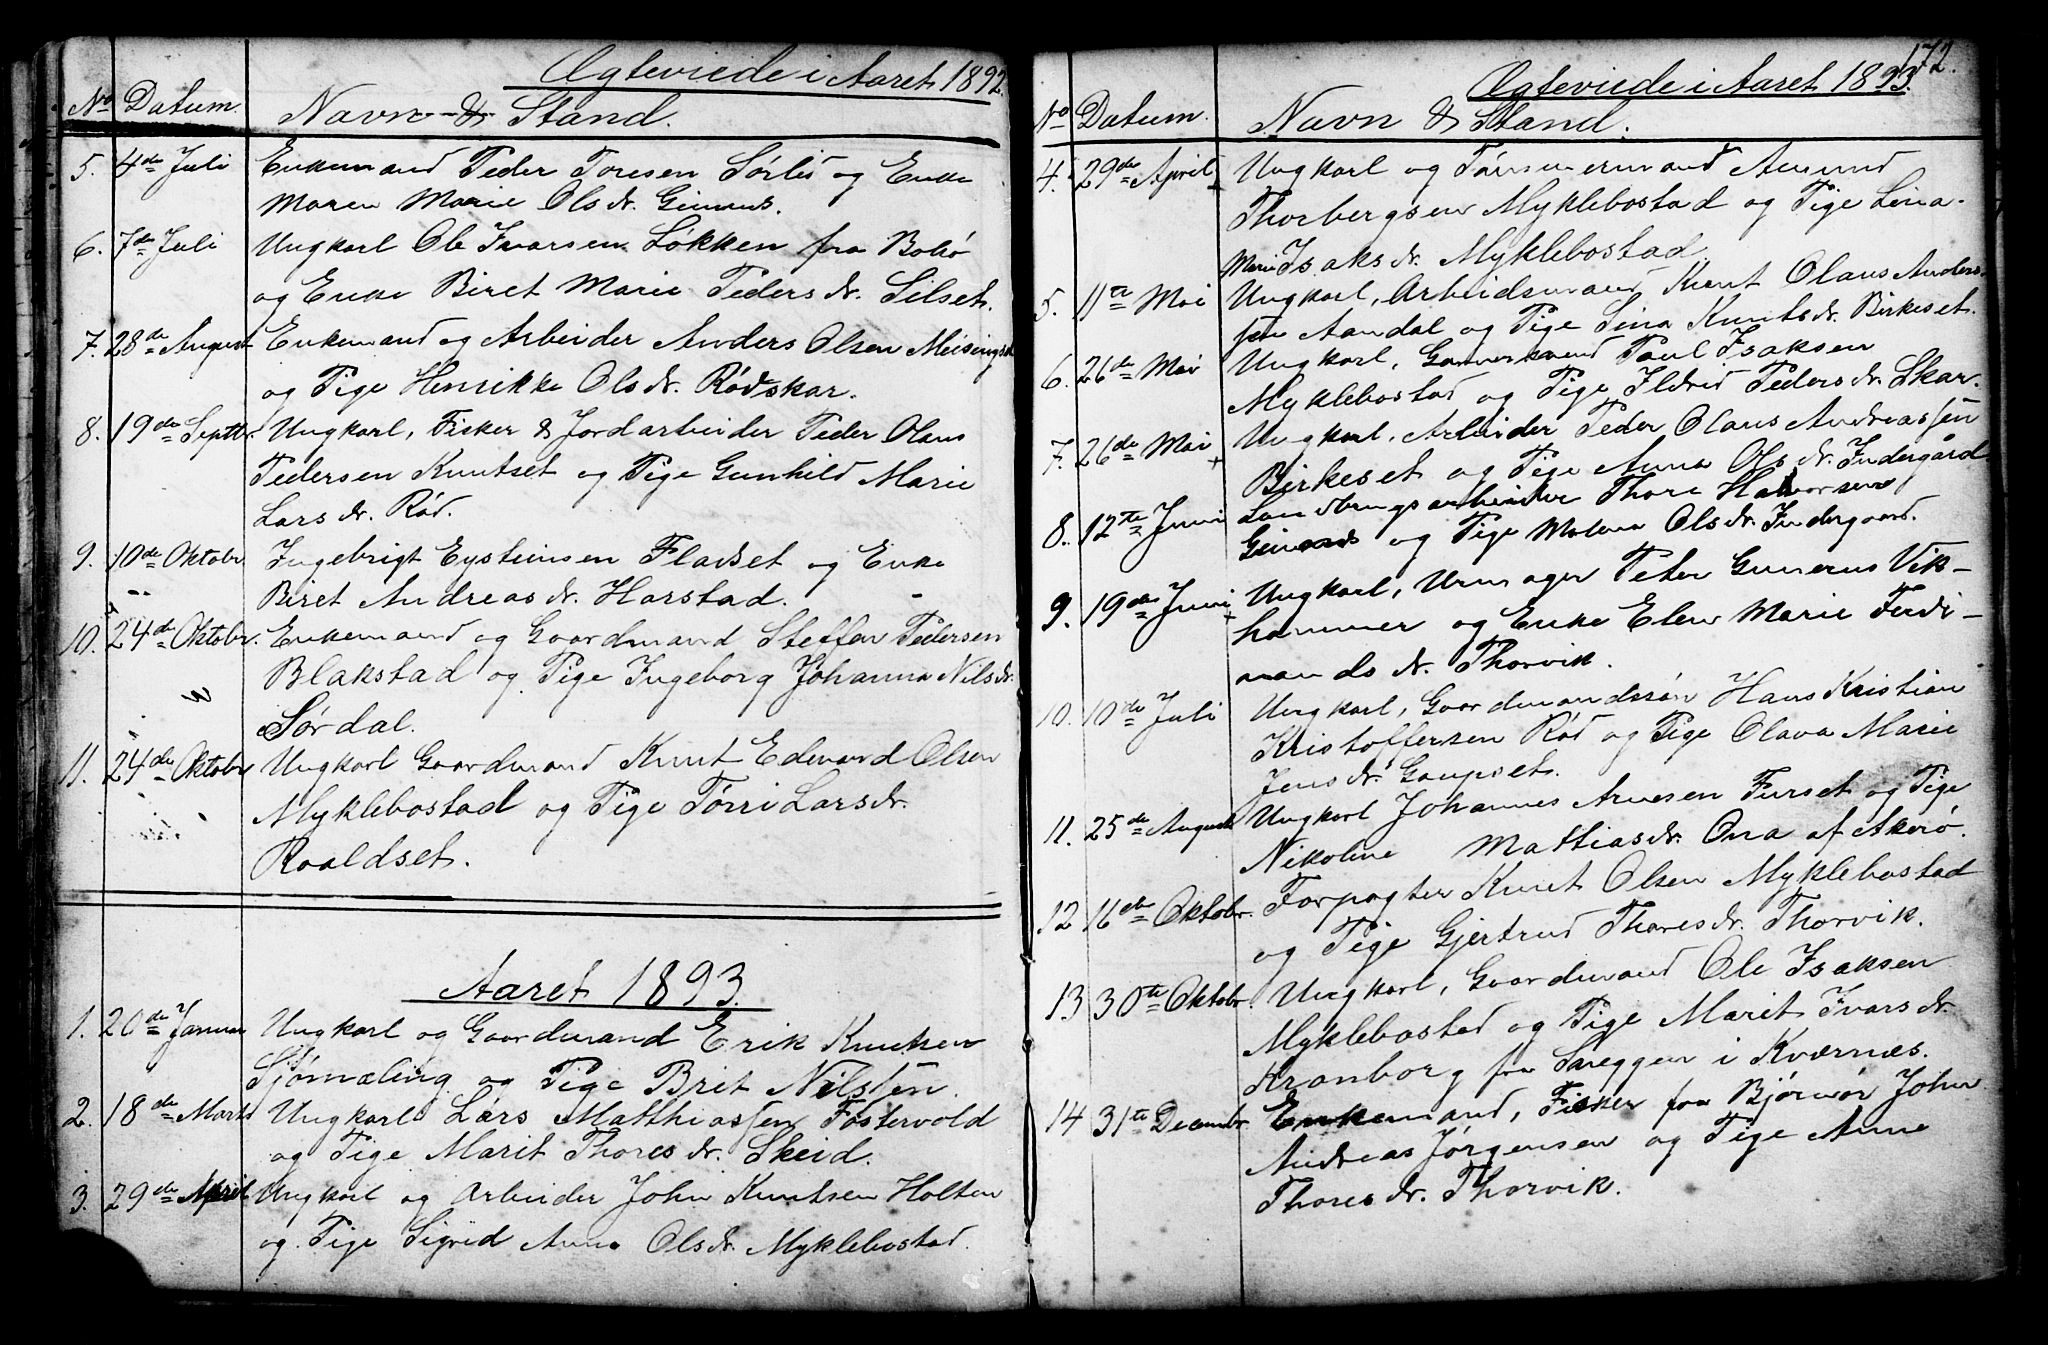 Ægteviede i Aaret 1892.
No Datum. Navn & Stand.
5. 4de Juli Enkemand Peder Toresen Sørlid og Enke
Maren Marie Olsdr. Geimnes.
6. 7de Juli Ungkarl Ole Ivarsen Løkken fra Bolsø
og Enke Beret Marie Pedersdr. Silset.
7. 28de August Enkemand og Arbeider Anders Olsen Meisingset
og Pige Henrikke Olsdr. Rødskar.
8. 19de Septbr. Ungkarl, Fisker & Jordarbeider Peder Olaus
Pedersen Knutset og Pige Gunhild Marie
Larsdr. Rød.
9. 10de Oktobr. Ingebrigt Eysteinsen Fladset og Enke
Beret Andreasdr. Harstad.
10. 24de Oktobr. Enkemand og Gaardmand Steffen Pedersen
Blakstad og Pige Ingeborg Johanna Nilsdr.
Sørdal.
11. 24de Oktobr. Ungkarl Gaardmand Knut Edvard Olsen
Myklebostad og Pige Tørri Larsdr.
Roaldset.
Aaret 1893.
1. 20de Januar Ungkarl og Gaardmand Erik Knutsen
Sjømæling og Pige Brit Nilssen.
2. 18de Marts Ungkarl Lars Matthiassen Fostervold
og Pige Marit Thoresdr. Skeid.
3. 29de April Ungkarl og Arbeider John Knutsen Holten
og Pige Sigrid Anna Olsdr. Myklebostad.
172.
Ægteviede i Aaret 1893.
No Datum. Navn & Stand.
4. 29de April Ungkarl og Tømmermand Amund
Thorbergsen Myklebostad og Pige Lina
Marie Isaksdr. Myklebostad.
5. 11te Mai Ungkarl, Arbeidsmand Knut Olaus Anders-
sen Aandal og Pige Sina Knutsdr. Birkeset.
6. 26de Mai Ungkarl, Paul Isaksen
Myklebostad og Pige Ildrid Pedersdr. Skar.
7. 26de Mai Ungkarl, Arbeider Peder Olaus Andreassen
Birkeset og Pige Anna Olsdr. Indergård.
8. 12te Juni Landbrugsarbeider Thore Halvorsen
Geimnes og Pige Malena Olsdr. Indergaard.
9. 19de Juni Ungkarl, Urmager Peter Gunerus Vik-
hammer og Enke Elen Marie Ferdi-
nandsdr. Thorvik.
10. 10de Juli Ungkarl, Gaardmandssøn Hans Kristian
Kristoffersen Rød og Pige Olava Marie
Jensdr. Gaupset.
11. 25de August Ungkarl Johannes Arnesen Furset og Pige
Nikoline Mattiasdr. Ona af Akerø.
12 16de Oktobr. Forpagter Knut Olsen Myklebostad
og Pige Gjertrud Thoresdr. Thorvik.
13 30te Oktobr. Ungkarl, Gaardmand Ole Isaksen
Myklebostad og Pige Marit Ivarsdr.
Kranborg fra Sneggen i Kværnæs.
14 31te Decembr. Enkemand, Fisker fra Bjørnør John
Andreas Jørgensen og Pige Anne
Thoresdr. Thorvik.